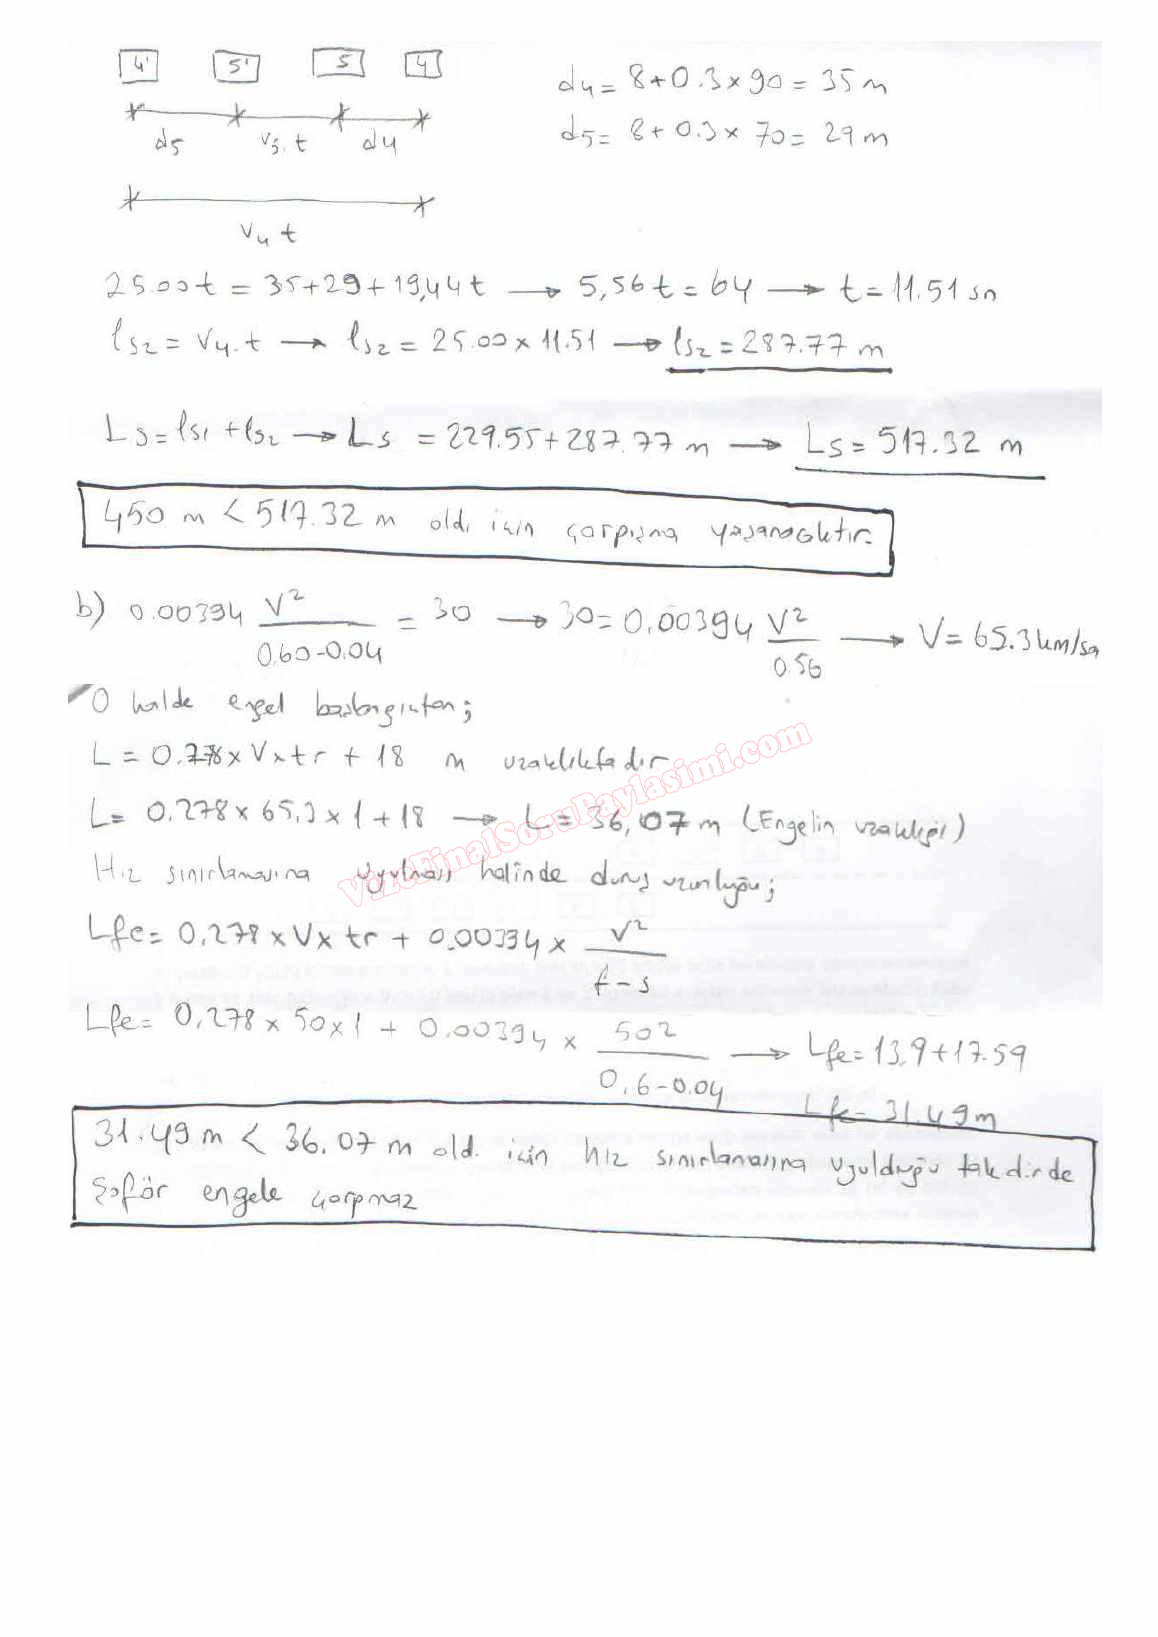 4' 5' 5 4
d4 = 8+0.3×90 = 35 m
d5 = 8+0.3×70 = 29 m
d5 V5.t d4
V4 t
25.00t = 35+29+19,44t → 5,56t = 64 → t = 11.51 sn
ls2 = V4.t → ls2 = 25.00×11.51 → ls2 = 287.77 m
Ls = ls1 + ls2 → Ls = 229.55+287.77 m → Ls = 517.32 m
450 m < 517.32 m old. için çarpışma yaşanacaktır.
b) 0.00394 V²/(0.60-0.04) = 30 → 30 = 0.00394 V²/0.56 → V = 65.3 km/sa
O halde engel başlangıçtan;
L = 0.278×V×tr + 18 m uzaklıktadır
L = 0.278×65,3×1+18 → L = 36,07 m (Engelin uzaklığı)
Hız sınırlamasına uyulması halinde duruş uzunluğu;
Lfe = 0,278×V×tr + 0.00394× V²/(f-s)
Lfe = 0,278×50×1 + 0.00394 × 50²/(0,6-0.04) → Lfe = 13,9+17.59
Lfe = 31.49 m
31.49 m < 36.07 m old. için hız sınırlamasına uyulduğu takdirde
şoför engele çarpmaz
VizeFinalSoruPaylasimi.com